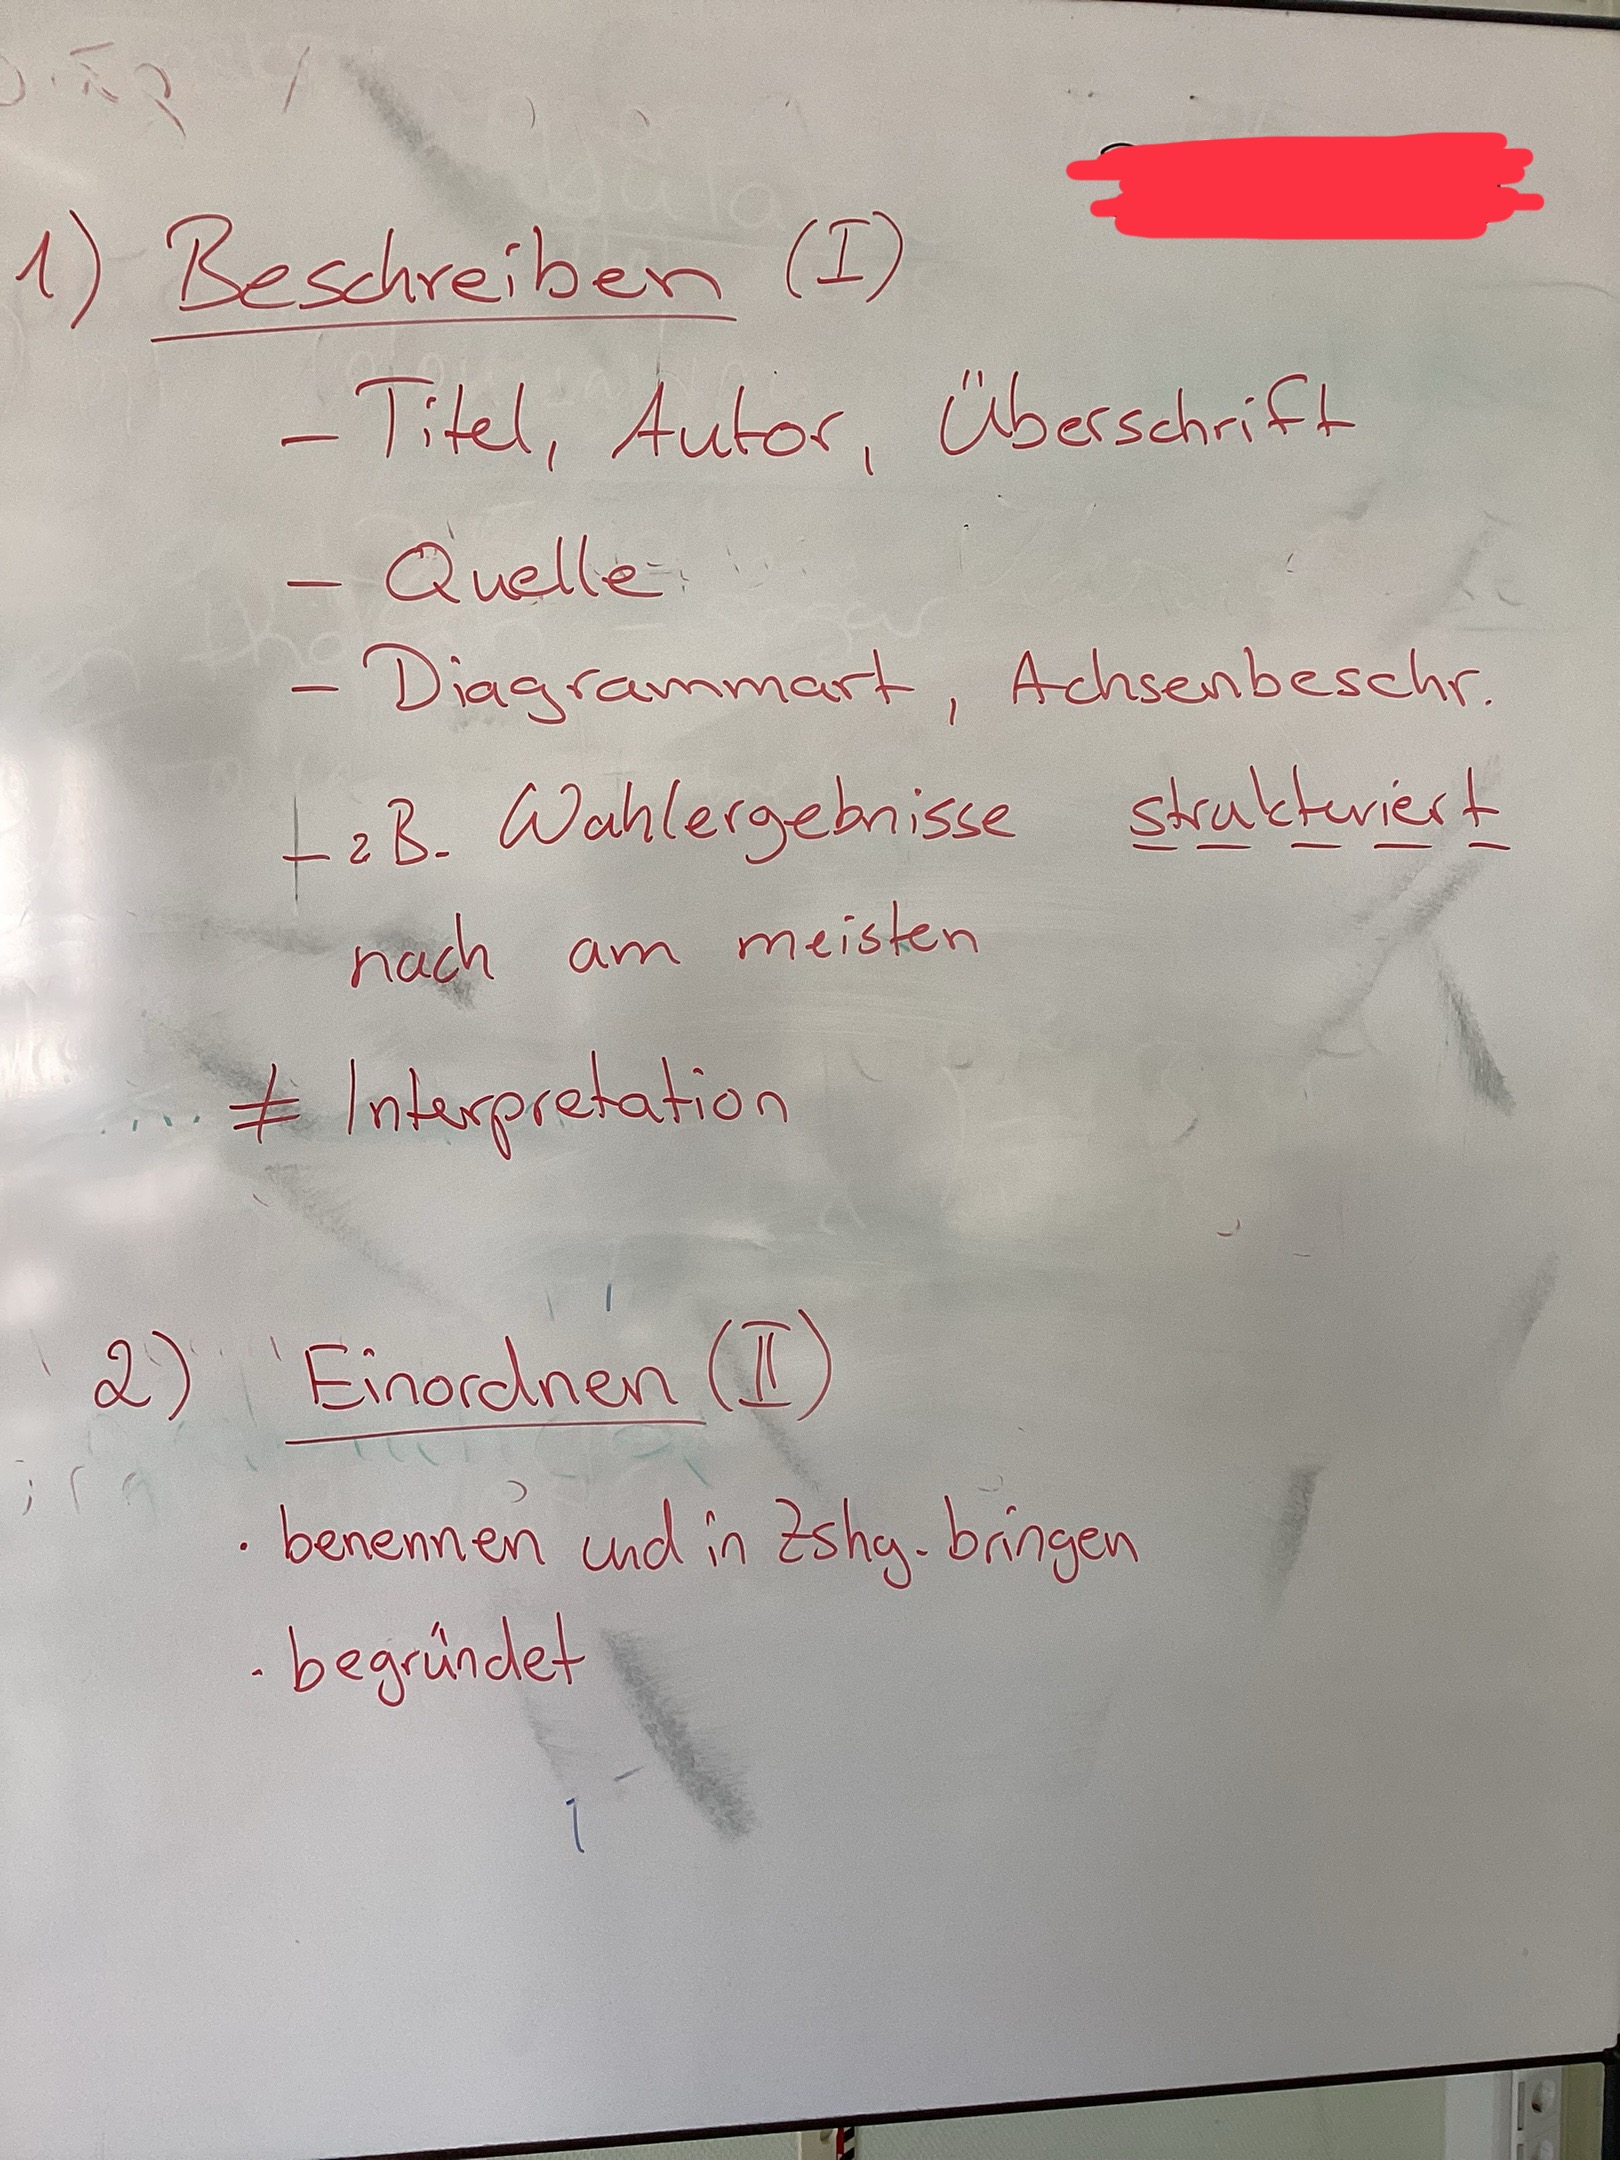 1) Beschreiben (I)
- Titel, Autor, Überschrift
- Quelle
- Diagrammart, Achsenbeschr.
+ z B. Wahlergebnisse strukturiert
nach am meisten
≠ Interpretation
2) Einordnen (II)
· benennen und in Zshg. bringen
· begründet